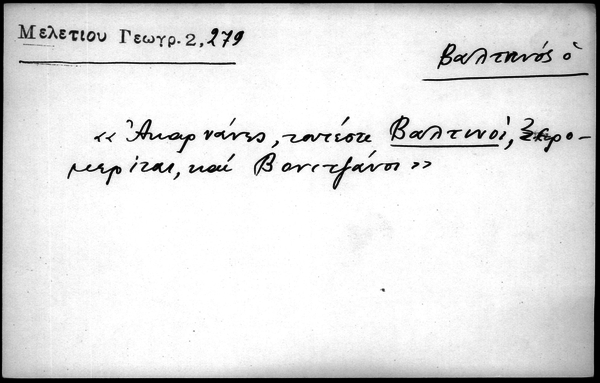 Μελετίου Γεωγρ. 2, 279
Βαλτινός ὁ
«Ἀκαρνάνες, τουτέστι Βαλτινοὶ, Ξηρο-
μερίται, καὶ Βονιτζάνοι»